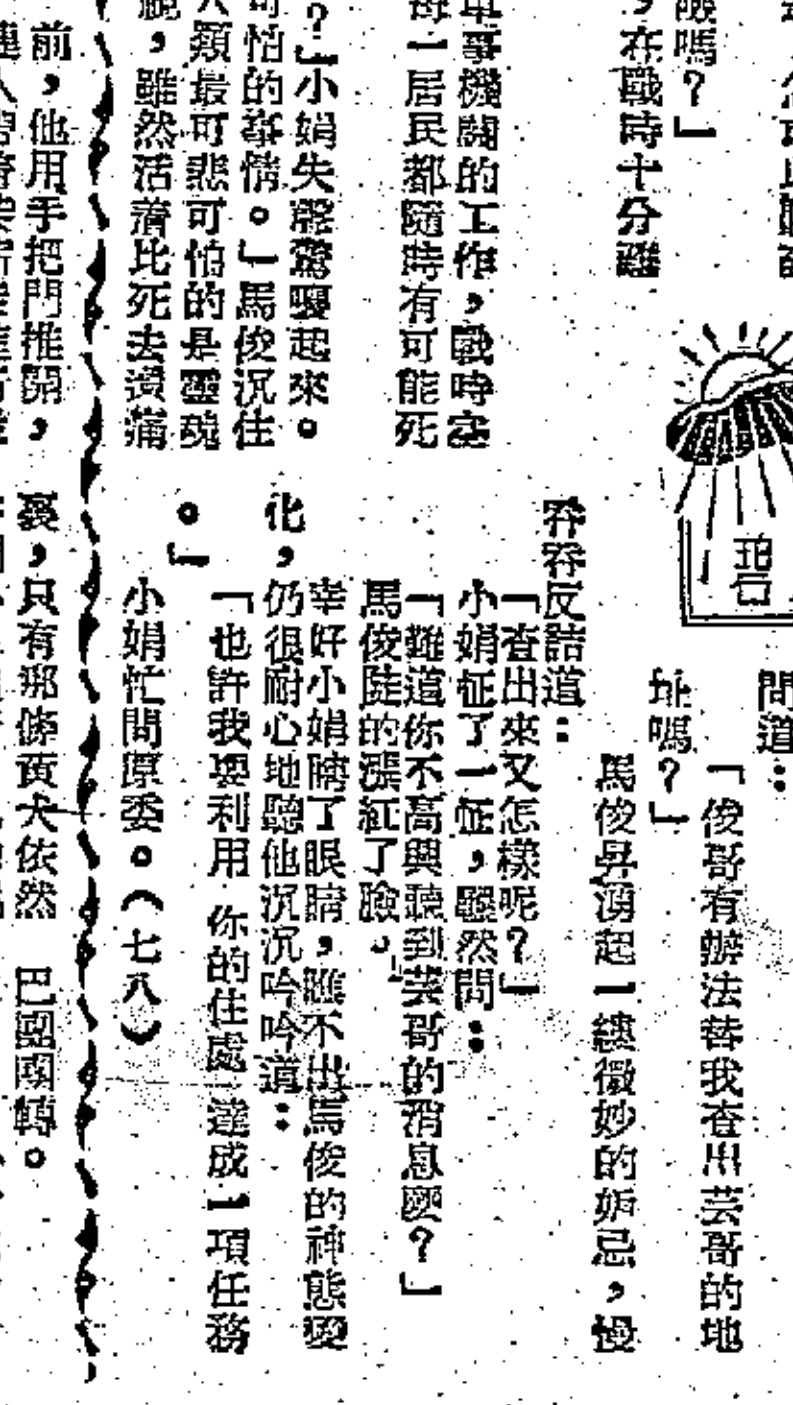 險嗎?」
,在戰時十分難
軍事機關的工作,戰時當
每一居民都隨時有可能死
?」小娟失聲驚嚷起來。
可怕的事情。」馬俊沉住
人類最可悲可怕的是靈魂
,雖然活着比死去還痛
碧
問道:
「俊哥有辦法替我查出芸哥的地
址嗎?」
馬俊昇湧起一縷微妙的妒忌,慢
吞吞反詰道:
「查出來又怎樣呢?」
小娟怔了一怔,驟然問:
「難道你不高興聽到芸哥的消息麼?」
馬俊陡的漲紅了臉。
幸好小娟瞎了眼睛,瞧不出馬俊的神態變
化,仍很耐心地聽他沉沉吟吟道:
「也許我要利用你的住處達成一項任務
。」
小娟忙問原委。(七八)
前,他用手把門推開,
裏,只有那條黃犬依然
巴團團轉。